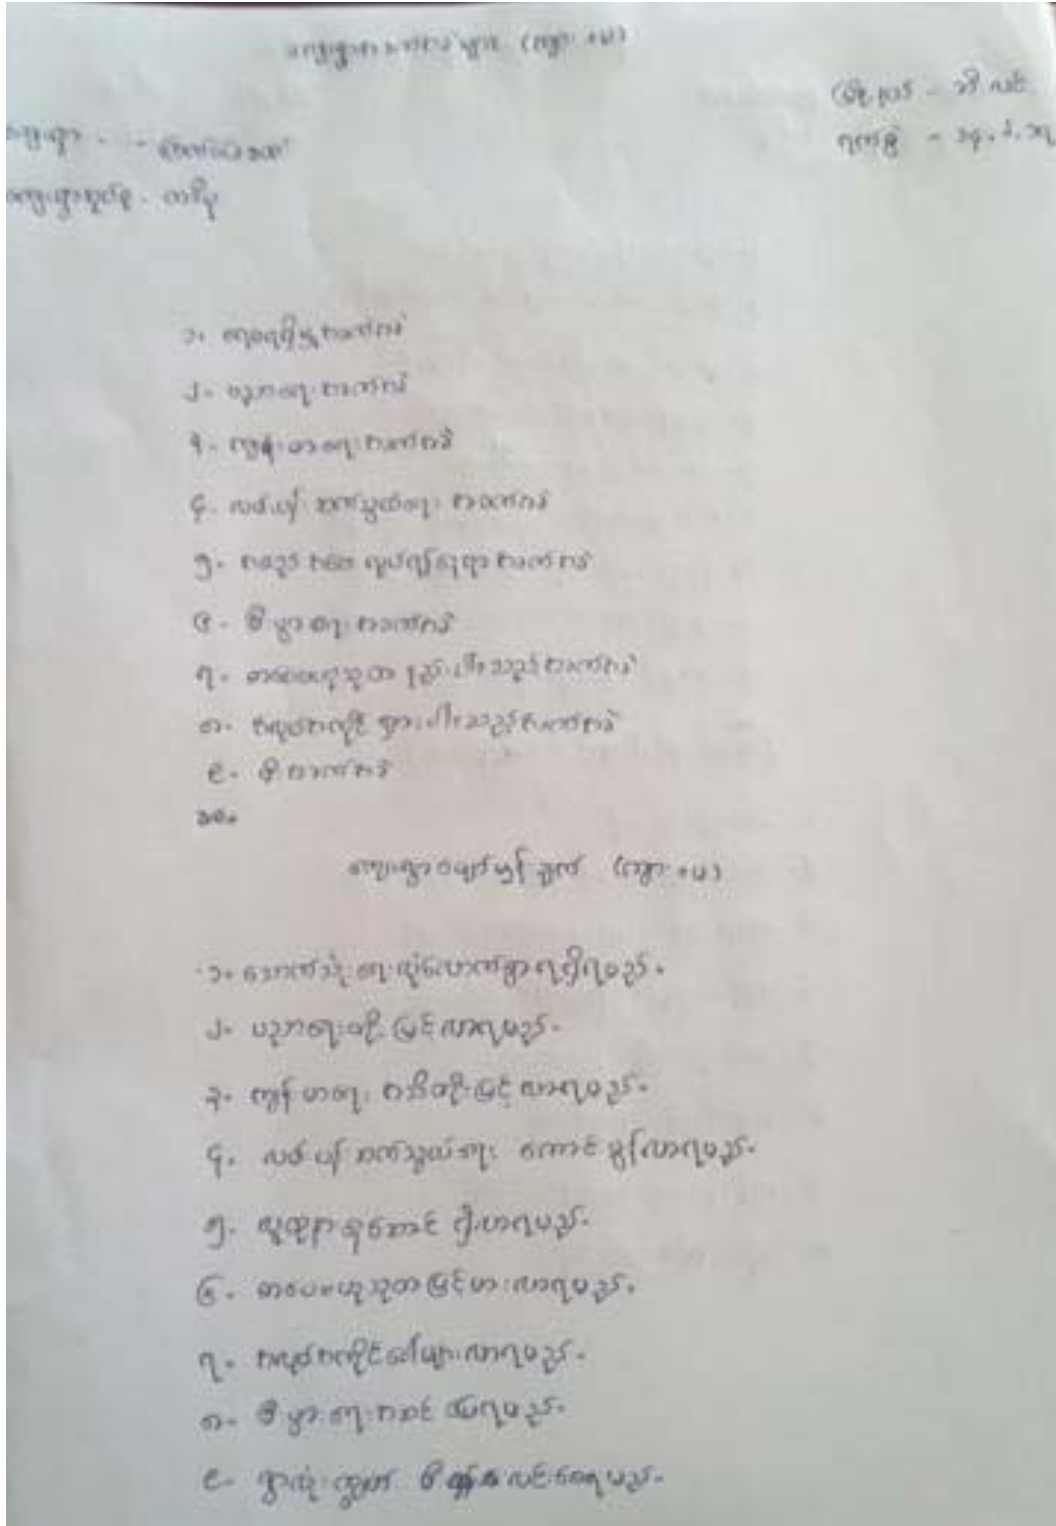 ကျေးရွာအခက်အခဲများ (ကျား + မ)
မြို့နယ် - သီပေါ
ကျေးရွာ -
ရက်စွဲ -
ကျေးရွာအုပ်စု -
၁။ ရေရရှိမှုအခက်အခဲ
၂။ ပညာရေးအခက်အခဲ
၃။ ကျန်းမာရေးအခက်အခဲ
၄။ လမ်းပန်းဆက်သွယ်ရေး အခက်အခဲ
၅။ အစည်းအဝေး အခက်အခဲ
၆။ စီးပွားရေးအခက်အခဲ
၇။ ဗဟုသုတ နည်းပါးသည့်အခက်အခဲ
၈။ အလုပ်အကိုင် ရှားပါးသည့်အခက်အခဲ
၉။ မီးအခက်အခဲ
၁၀။
ကျေးရွာမျှော်မှန်းချက် (ကျား + မ)
၁။ သောက်သုံးရေလုံလောက်စွာရရှိရမည်။
၂။ ပညာရေးတိုးမြင့်လာရမည်။
၃။ ကျန်းမာရေး အသိတိုးမြင့်လာရမည်။
၄။ လမ်းပန်းဆက်သွယ်ရေး ကောင်းမွန်လာရမည်။
၅။ ရှိလာရမည်။
၆။ ဗဟုသုတမြင့်မားလာရမည်။
၇။ အလုပ်အကိုင်ပေါများလာရမည်။
၈။ စီးပွားရေးအဆင်ပြေရမည်။
၉။ ရွာလုံးကျွတ် မီး လင်းစေရမည်။